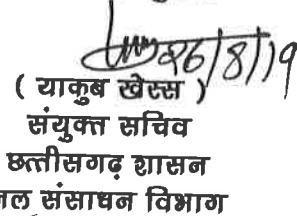 26/8/19
( याकुब खेस्स )
संयुक्त सचिव
छत्तीसगढ़ शासन
जल संसाधन विभाग